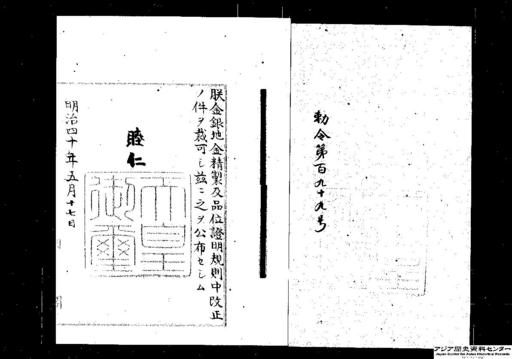 勅令第百九十九号
朕金銀地金精製及品位證明規則中改正
ノ件ヲ裁可シ茲ニ之ヲ公布セシム
睦仁
天皇
御璽
明治四十年五月十七日
アジア歴史資料センター
Japan Center for Asian Historical Records